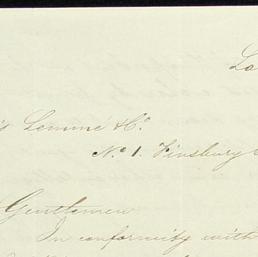 La
s Lemmé & Co
No 1. Finsbury
Gentlemen
In conformity with